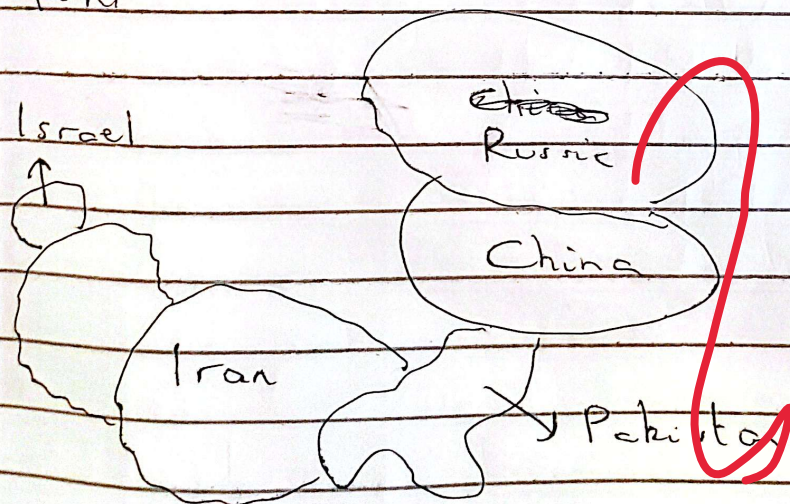 Israel
Russia
China
Iran
Pakistan